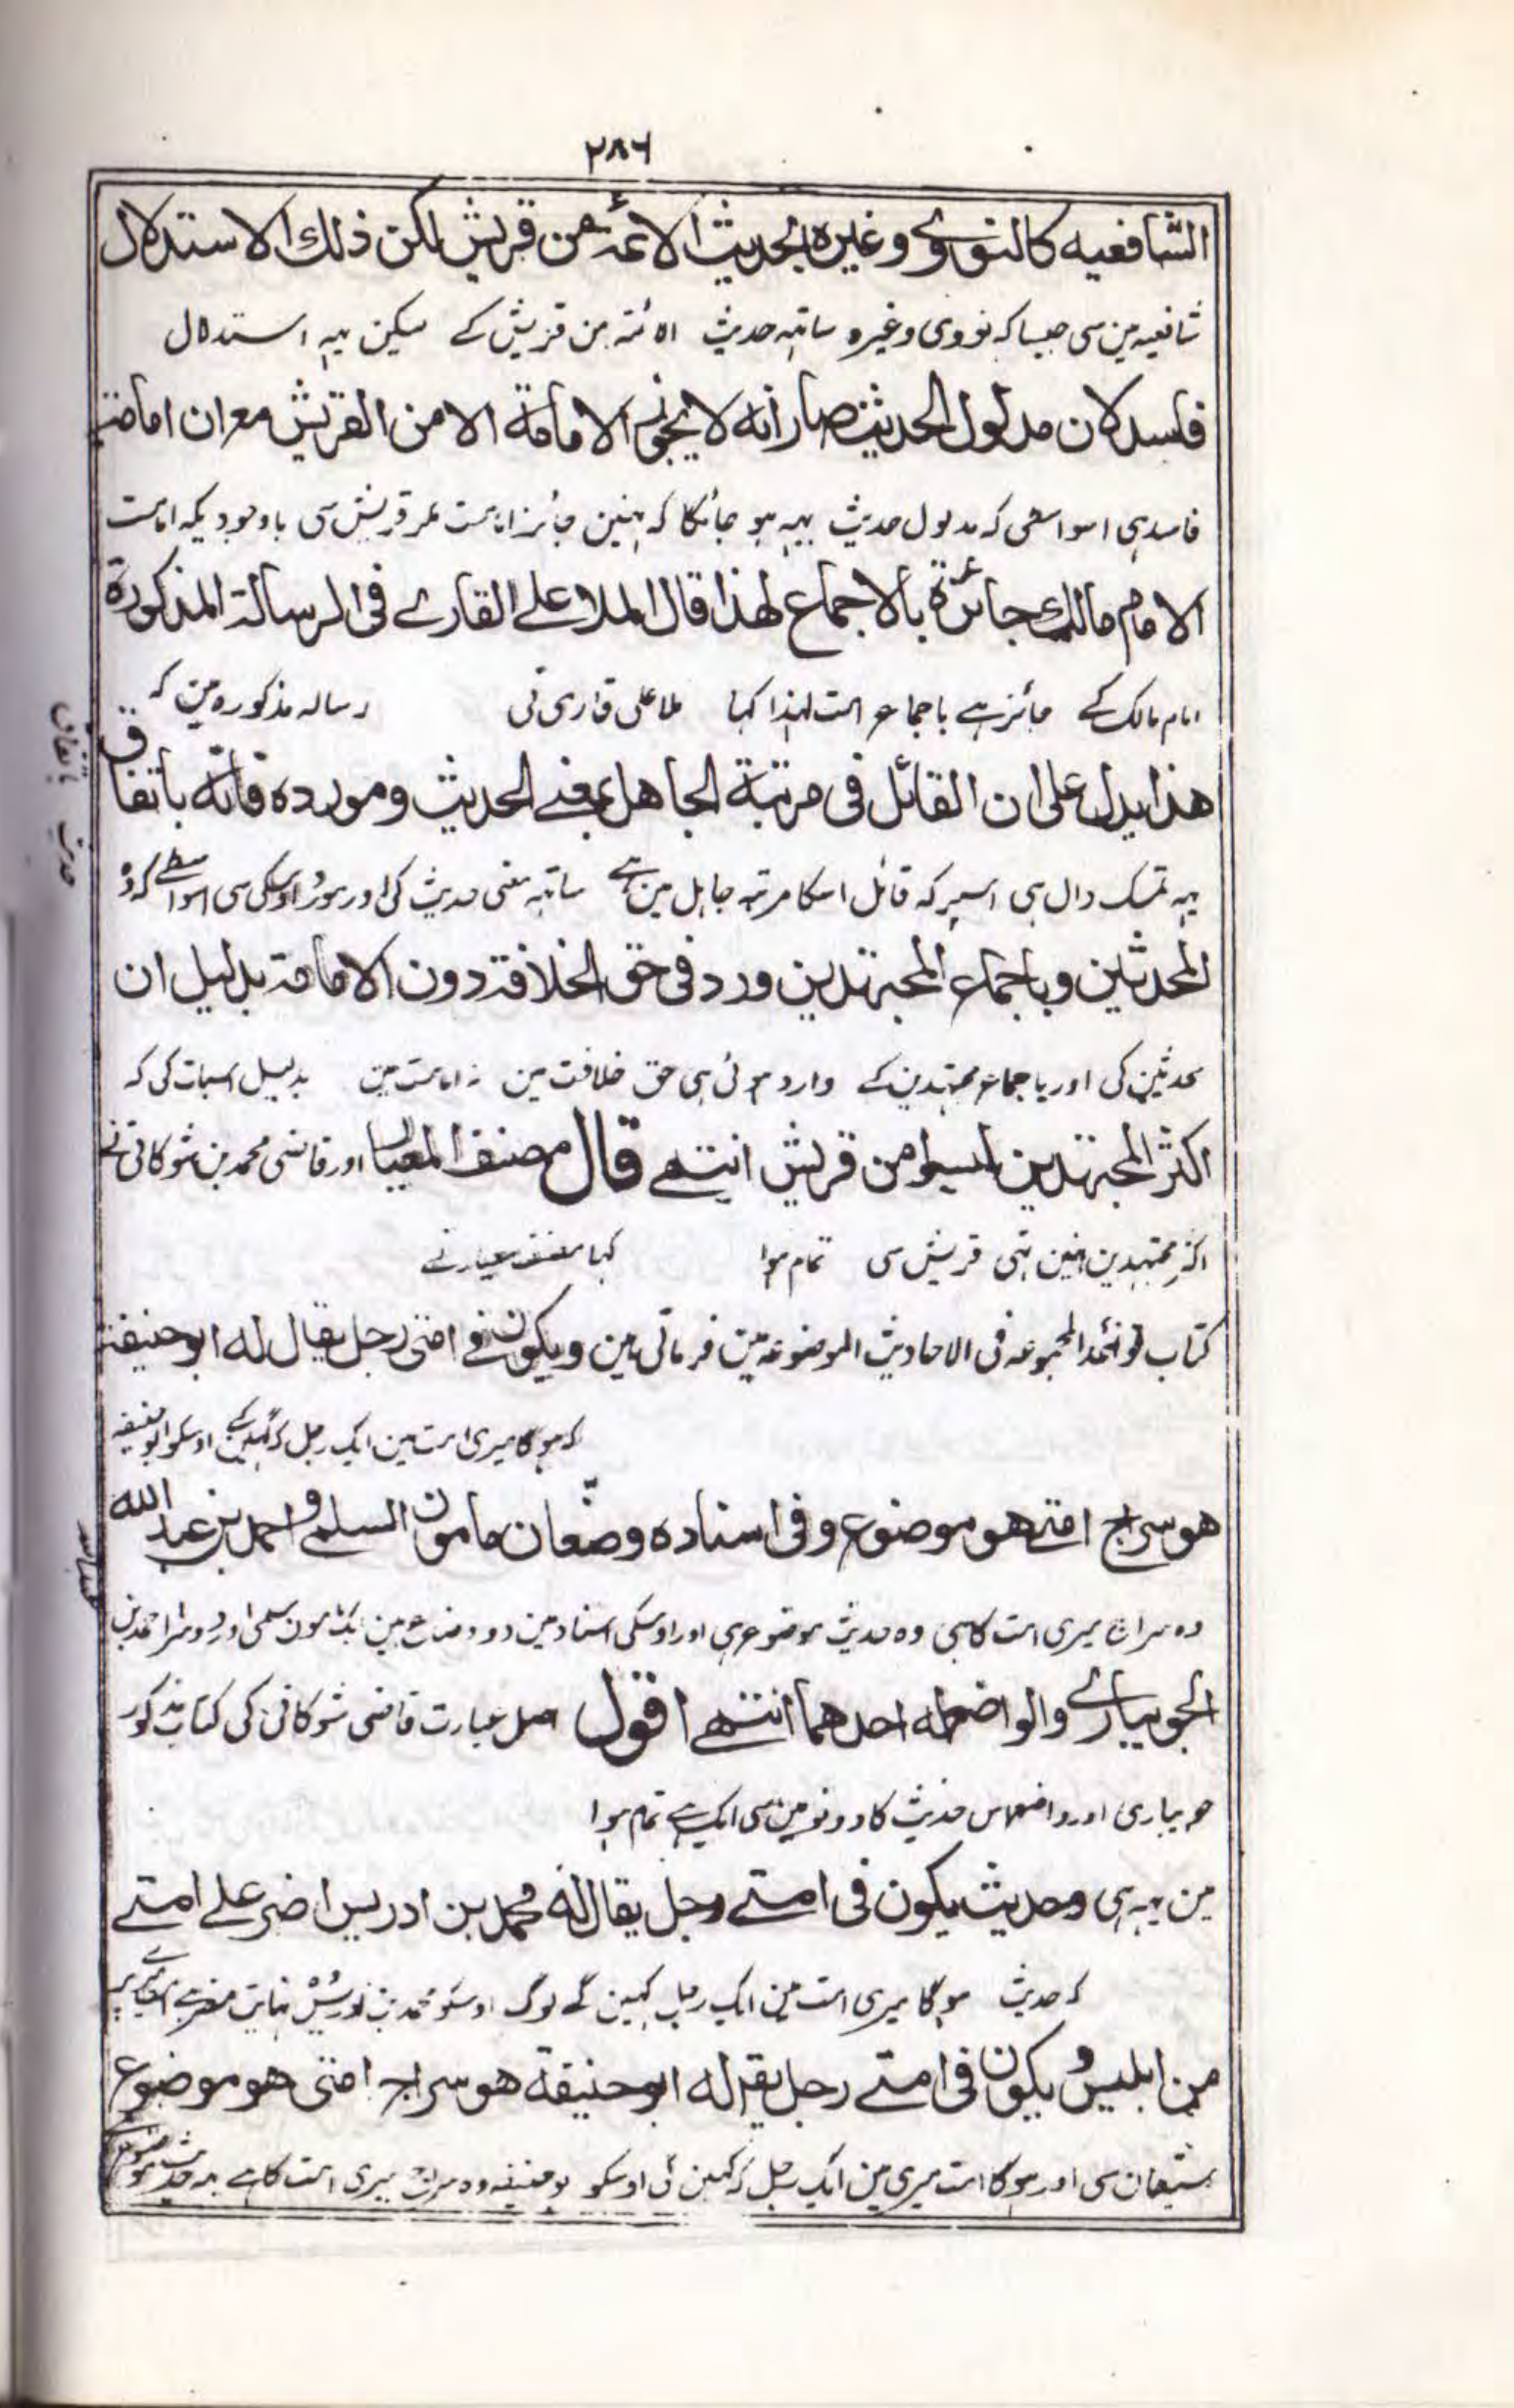 ۲۸۶
الشافعیه کالنووی وغیره بحدیث الائمة من قریش لکن ذلك الاستدلال
شافعیہ مین سی جیسا کہ نووی وغیرہ ساتہہ حدیث الائمۃ من قریش کے لیکن یہہ استدلال
فاسد لان مدلول الحدیث صار انه لا یجوز الامامة الا من القریش مع ان امامة
فاسد ہی اسواسطی کہ مدلول حدیث یہہ ہو جائگا کہ نہین جائز امامت مگر قریش سی باوجودیکہ امامت
الامام مالك جائزة بالاجماع لهذا قال الملا علے القارے فی الرسالة المذکورة
امام مالک کے جائز ہے باجماع امت لہذا کہا ملا علی قاری نی رسالہ مذکورہ مین کہ
هذا یدل علی ان القائل فی مرتبة الجاهل بمعنے الحدیث ومورده فانه باتفاق
یہہ تمسک دال ہی اسپر کہ قائل اسکا مرتبہ جاہل مین ہے ساتہہ معنی حدیث کی اور مورد اوسکی سی اسواسطے کہ وہ
المحدثین وباجماع المجتهدین ورد فی حق الخلافة دون الامامة بدلیل ان
محدثین کی اور باجماع مجتہدین کے وارد ہوئی ہی حق خلافت مین نہ امامت مین بدلیل اسبات کی کہ
اکثر المجتهدین لیسوا من قریش انتهے قال مصنف المعیار اور قاضی محمد بن شوکانی نے
اکثر مجتہدین نہین ہتی قریش سی تمام ہوا کہا مصنف معیار نے
کتاب فوائد المجموعہ فی الاحادیث الموضوعہ مین فرماتی ہین ویکون فے امتی رجل یقال له ابو حنیفة
کہ ہوگا میری امت مین ایک رجل کہ کہینگے اوسکو ابو حنیفہ
هو سراج امتے هو موضوع وفی اسناده وضّعان مامون السلمی واحمد بن عبد الله
وہ سراج میری امت کا ہی وہ حدیث موضوع ہی اور اوسکی اسناد مین دو وضاع ہین ایک مامون سلمی اور دوسرا احمد بن
الجویبارے والواضع له احدهما انتهے اقول اصل عبارت قاضی شوکانی کی کتاب مذکور
جویباری اور واضع اس حدیث کا دونو مین سی ایک ہے تمام ہوا
مین یہہ ہی وحدیث یکون فی امتے رجل یقال له محمد بن ادریس اضر علے امتے
کہ حدیث ہوگا میری امت مین ایک رجل کہین گے لوگ اوسکو محمد بن ادریس
من ابلیس ویکون فی امتے رجل یقر له ابو حنیفة هو سراج امتی هو موضوع
شیطان سی اور ہوگا امت میری مین ایک رجل کہ کہین گی اوسکو بو حنیفہ وہ سراج میری امت کا ہے یہ حدیث موضوع